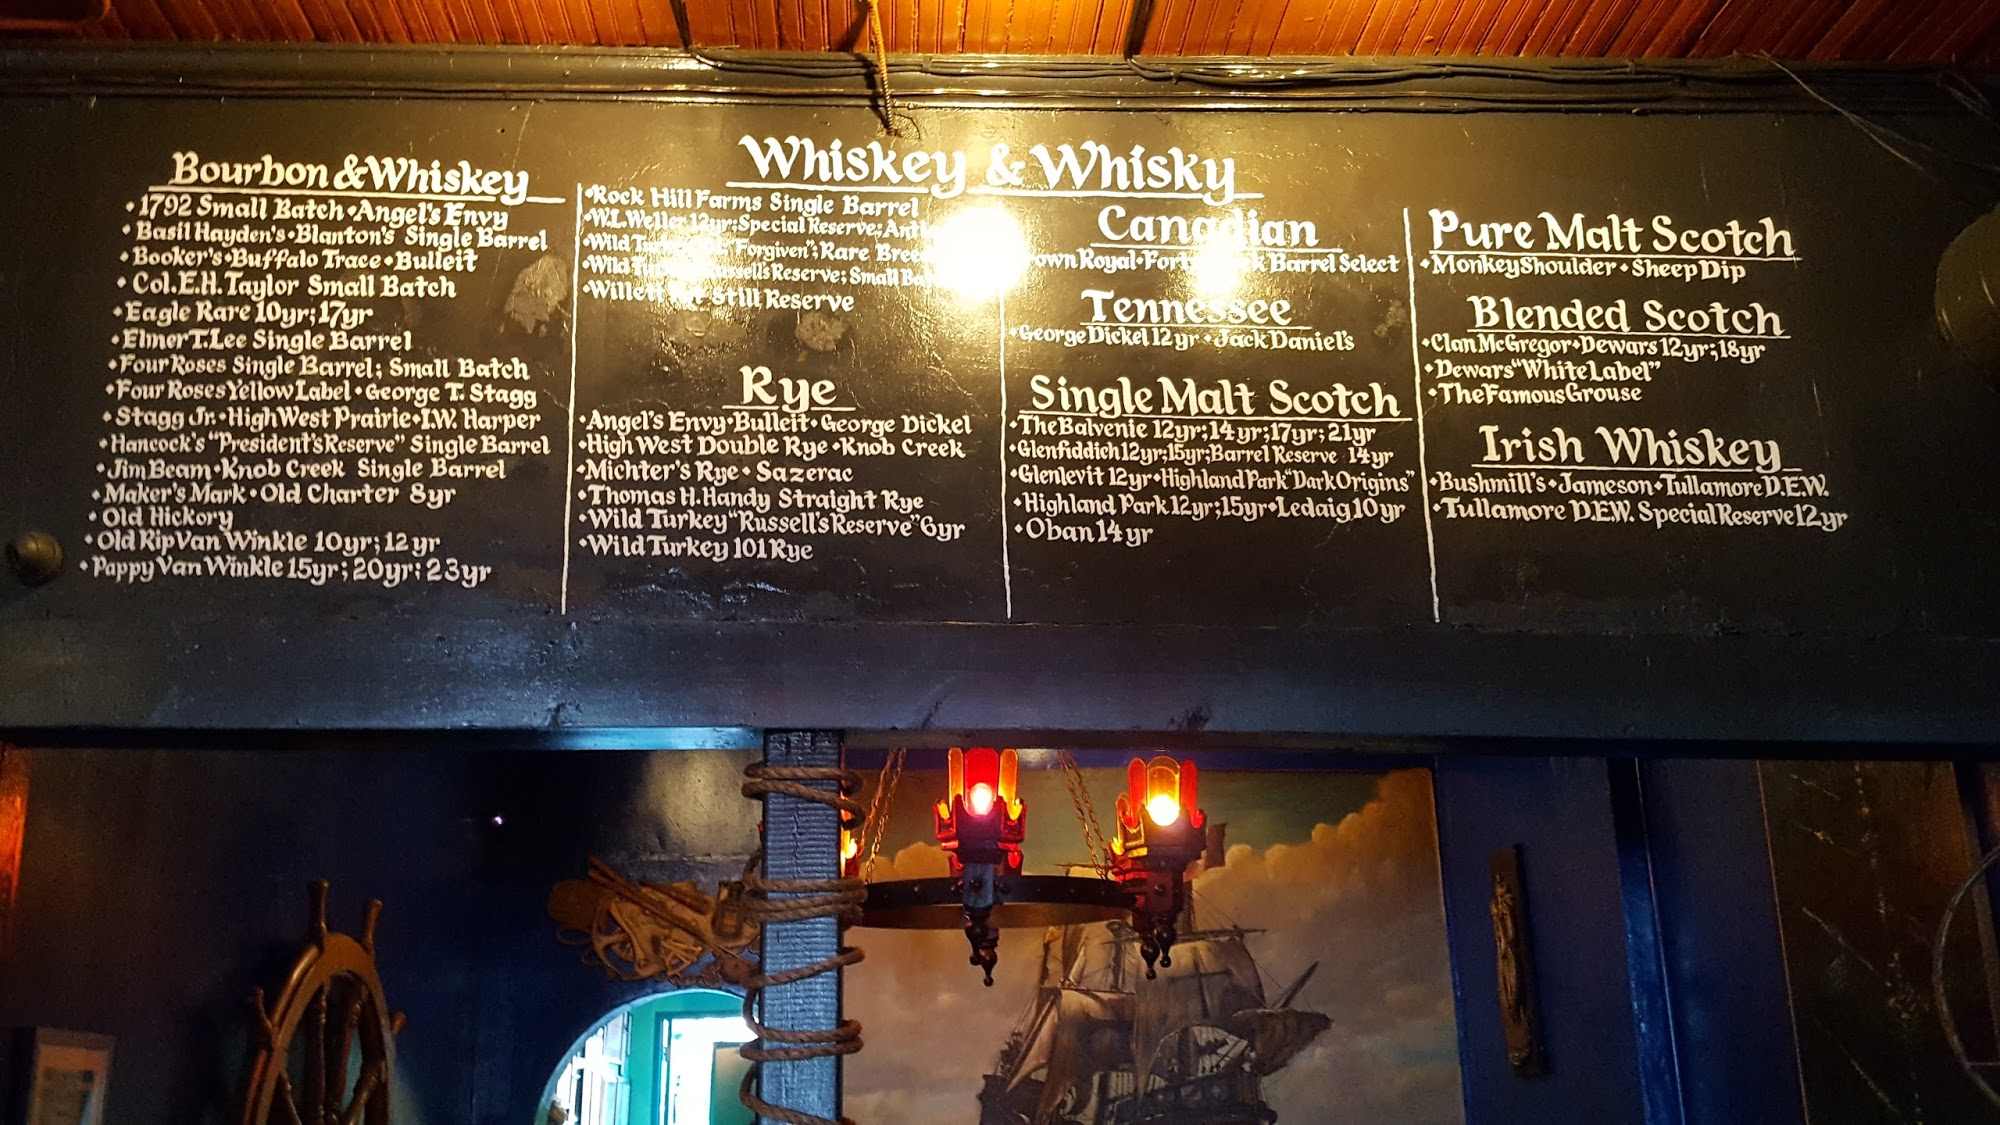 Whiskey & Whisky
Bourbon & Whiskey
•1792 Small Batch•Angel's Envy
•Basil Hayden's•Blanton's Single Barrel
•Booker's•Buffalo Trace•Bulleit
•Col.E.H.Taylor Small Batch
•Eagle Rare 10yr;17yr
•Elmer T.Lee Single Barrel
•Four Roses Single Barrel; Small Batch
•Four Roses Yellow Label•George T. Stagg
•Stagg Jr.•High West Prairie•I.W. Harper
•Hancock's "President's Reserve" Single Barrel
•Jim Beam•Knob Creek Single Barrel
•Maker's Mark•Old Charter 8yr
•Old Hickory
•Old Rip Van Winkle 10yr;12yr
•Pappy Van Winkle 15yr;20yr;23yr
•Rock Hill Farms Single Barrel
•W.L.Weller 12yr;Special Reserve;
•Wild "Forgiven"; Rare
•Wild Russell's Reserve; Small
•Willett Still Reserve
Rye
•Angel's Envy•Bulleit•George Dickel
•High West Double Rye•Knob Creek
•Michter's Rye•Sazerac
•Thomas H.Handy Straight Rye
•Wild Turkey "Russell's Reserve" 6yr
•Wild Turkey 101 Rye
Canadian
Royal• Barrel Select
Tennessee
•George Dickel 12yr•Jack Daniel's
Single Malt Scotch
•The Balvenie 12yr;14yr;17yr;21yr
•Glenfiddich 12yr;15yr;Barrel Reserve 14yr
•Glenlevit 12yr•Highland Park "Dark Origins"
•Highland Park 12yr;15yr•Ledaig 10yr
•Oban 14yr
Pure Malt Scotch
•Monkey Shoulder•Sheep Dip
Blended Scotch
•Clan McGregor•Dewars 12yr;18yr
•Dewars "White Label"
•The Famous Grouse
Irish Whiskey
•Bushmill's•Jameson•Tullamore D.E.W.
•Tullamore D.E.W. Special Reserve 12yr